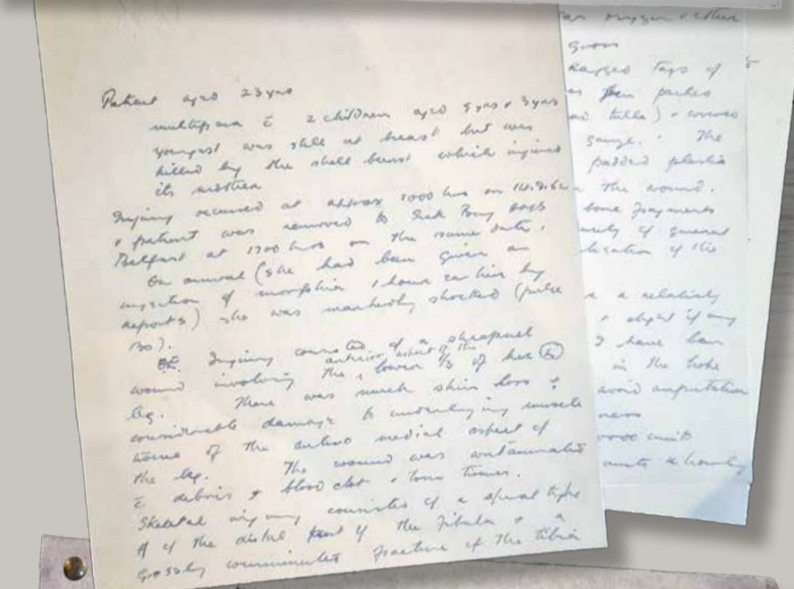 Patient aged 23 yrs
multipara c̄ 2 children aged 5 yrs & 3 yrs
youngest was still at breast but was
killed by the shell burst which injured
its mother
Injury occurred at approx 1000 hrs on
& patient was removed to Sick Bay HMS
Belfast at 1300 hrs on the same date.
On arrival (she had been given an
injection of morphia 1 hour earlier by
) she was markedly shocked (pulse
130).
Injury consisted of a shrapnel
wound involving the anterior aspect of the lower ⅓ of her Ⓡ
leg. There was much skin loss &
considerable damage to underlying muscle
tissue of the antero medial aspect of
the leg. The wound was contaminated
c̄ debris & blood clot & torn tissues.
Skeletal injury consisted of a spiral type
# of the distal part of the fibula & a
grossly comminuted fracture of the tibia
oxygen & ether
gross
Ragged tags of
packed
tulle) & covered
gauze. The
padded plaster
the wound.
bone fragments
of general
of the
a relatively
& slight if any
I have been
in the hope
avoid amputation
units